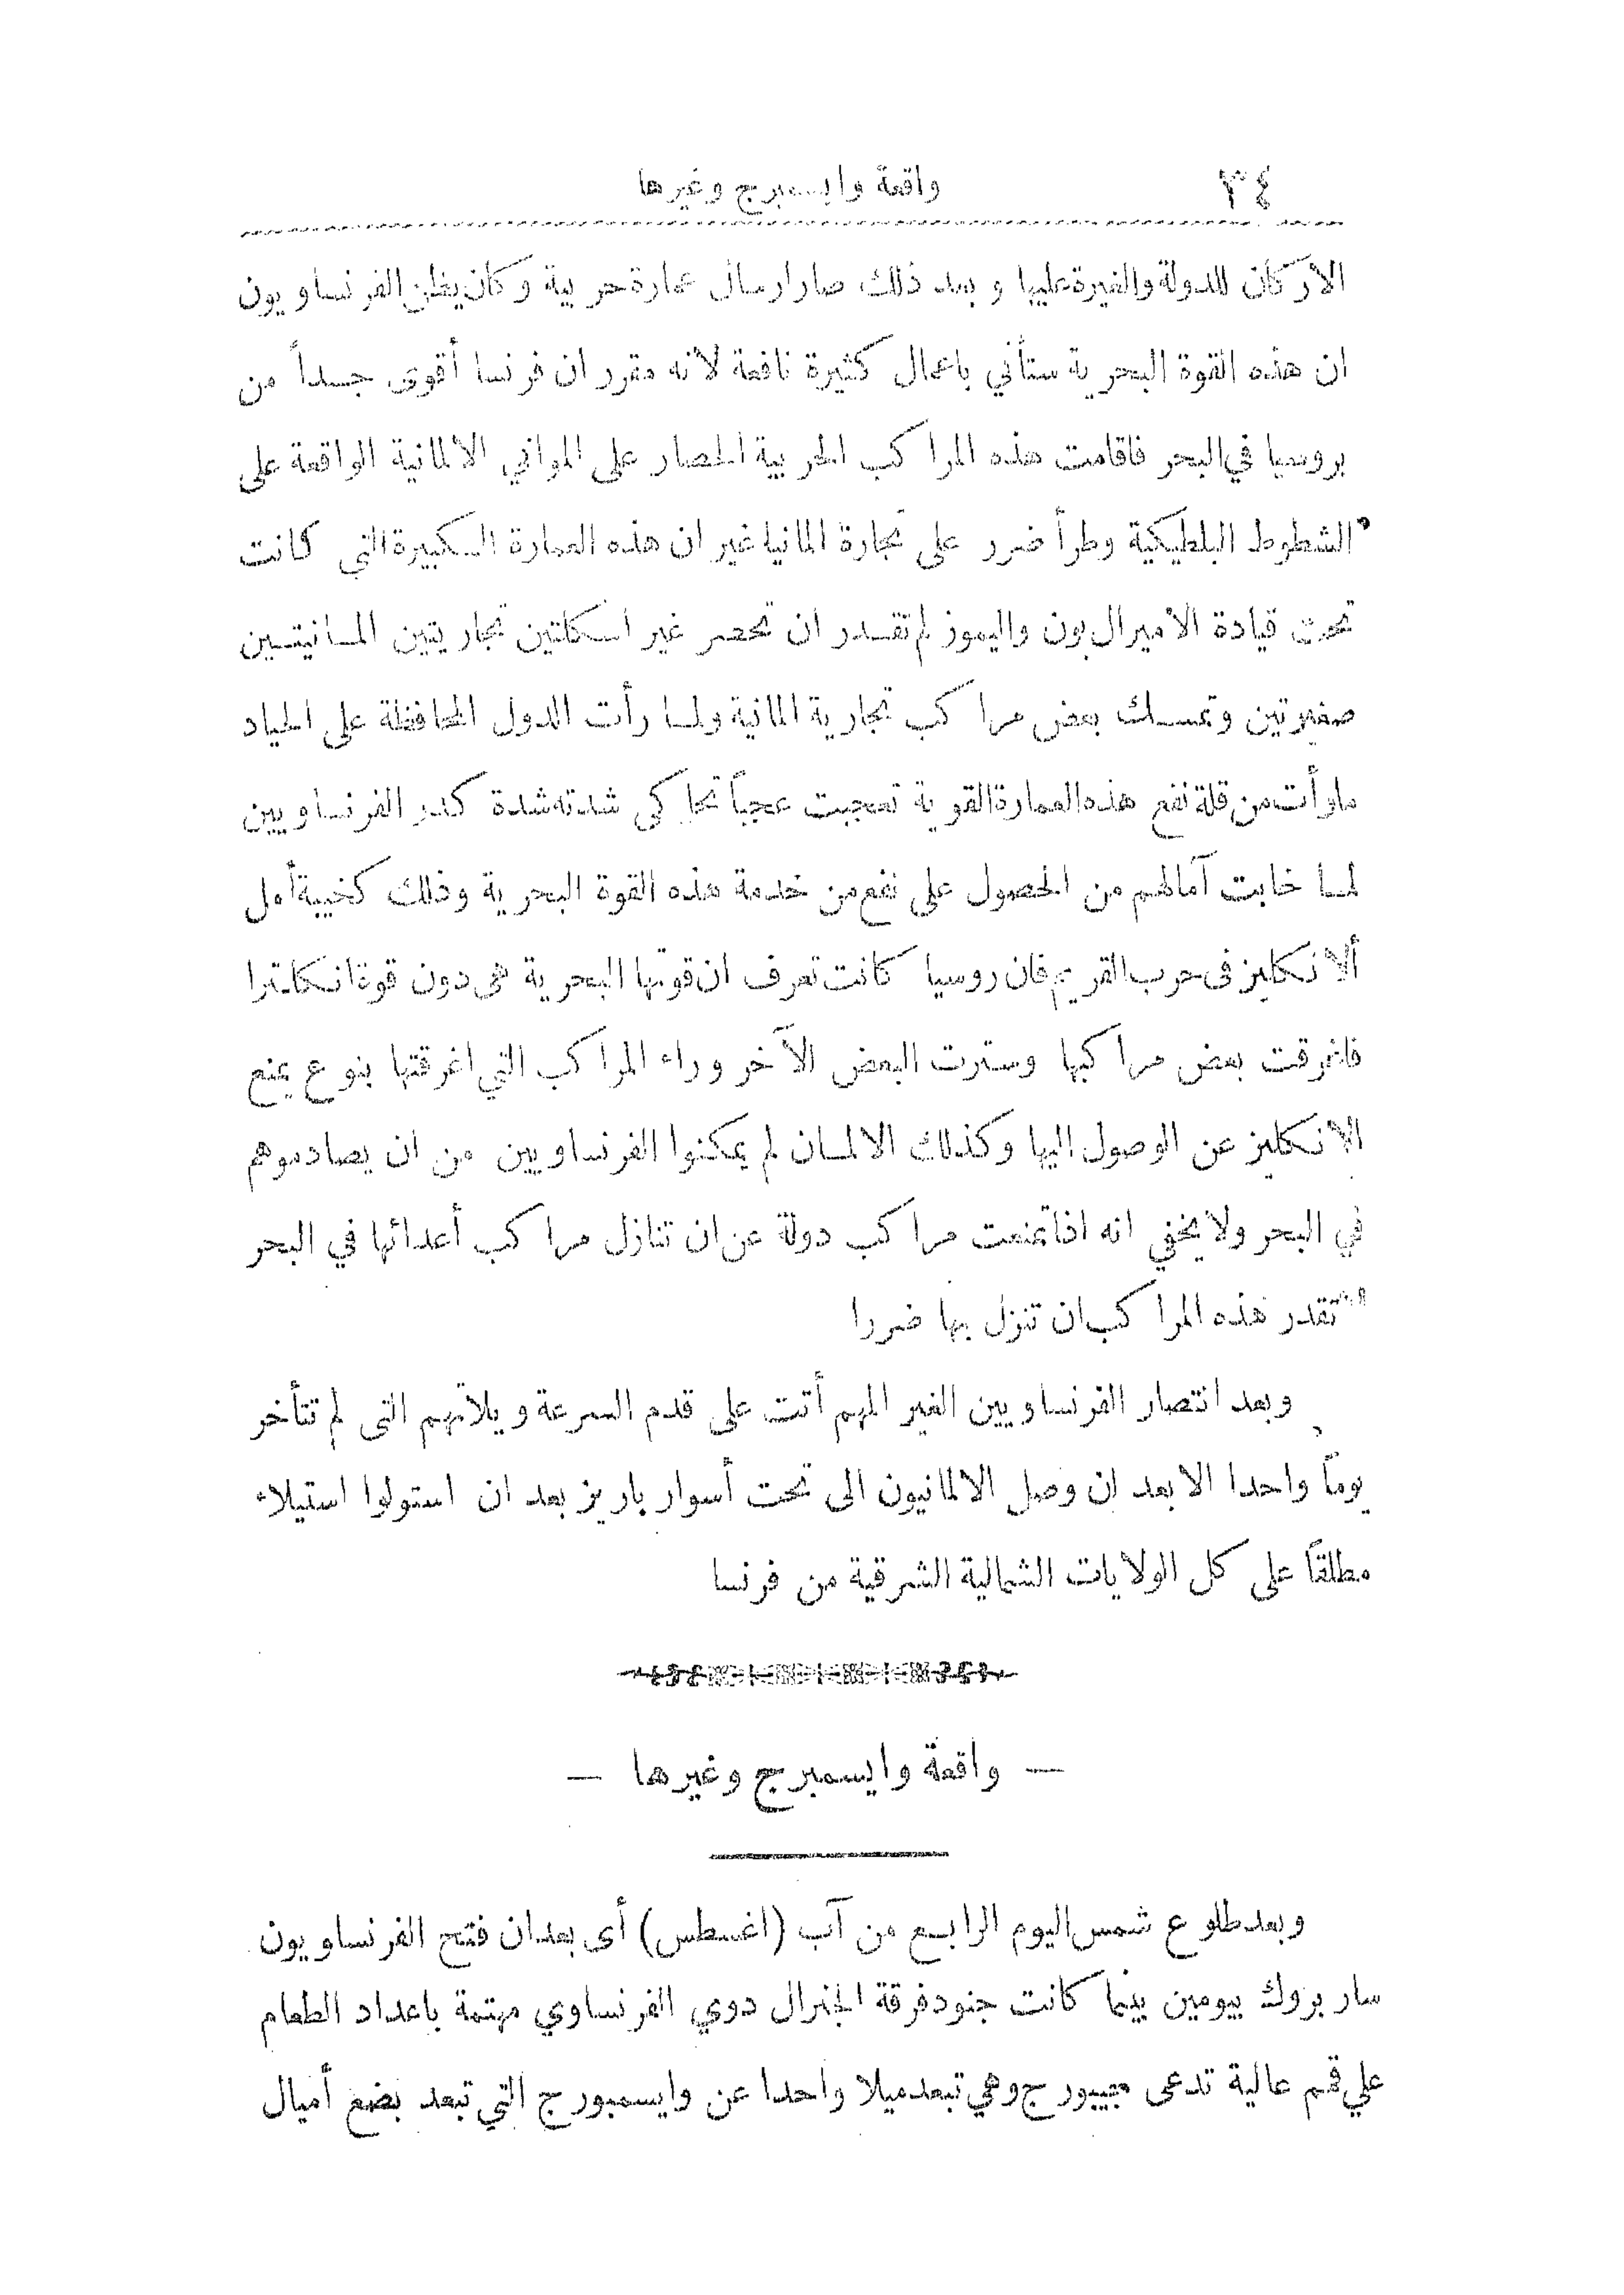 ٣٤ واقعة وايسمبرج وغيرها
الاركان للدولة والغيرة عليها وبعد ذلك صار ارسال عمارة حربية وكان يظن الفرنساويون
ان هذه القوة البحرية ستأتي باعمال كثيرة نافعة لانه مقرر ان فرنسا أقوى جسداً من
بروسيا في البحر فاقامت هذه المراكب الحربية الحصار على المواني الالمانية الواقعة على
الشطوط البلطيكية وطرأ ضرر على تجارة المانيا غير ان هذه العمارة الكبيرة التي كانت
تحت قيادة الاميرال بون واليموز لم تقدر ان تحصر غير اسكلتين تجاريتين المانيتين
صغيرتين وتمسك بعض مراكب تجارية المانية ولما رأت الدول المحافظة على الحياد
ما رأت من قلة نفع هذه العمارة القوية تعجبت عجباً تحاكي شدته شدة كدر الفرنساويين
لما خابت آمالهم من الحصول على نفع من خدمة هذه القوة البحرية وذلك كخيبة أمل
ألانكليز فى حرب القريم فان روسيا كانت تعرف ان قوتها البحرية هى دون قوة انكلترا
فاغرقت بعض مراكبها وسترت البعض الآخر وراء المراكب التي اغرقتها بنوع يمنع
الانكليز عن الوصول اليها وكذلك الالمان لم يمكنوا الفرنساويين من ان يصادموهم
في البحر ولا يخفي انه اذا تمنعت مراكب دولة عن ان تنازل مراكب أعدائها في البحر
لا تقدر هذه المراكب ان تنزل بها ضررا
وبعد انتصار الفرنساويين الغير المهم أتت على قدم السرعة ويلاتهم التى لم تتأخر
يوماً واحدا الا بعد ان وصل الالمانيون الى تحت أسوار باريز بعد ان استولوا استيلاء
مطلقاً على كل الولايات الشمالية الشرقية من فرنسا
— واقعة وايسمبرج وغيرها —
وبعد طلوع شمس اليوم الرابع من آب (اغسطس) أى بعد ان فتح الفرنساويون
سار بروك بيومين بينما كانت جنود فرقة الجنرال دوي الفرنساوي مهتمة باعداد الطعام
علي قمم عالية تدعى جيبورج وهي تبعد ميلا واحدا عن وايسمبورج التي تبعد بضع أميال